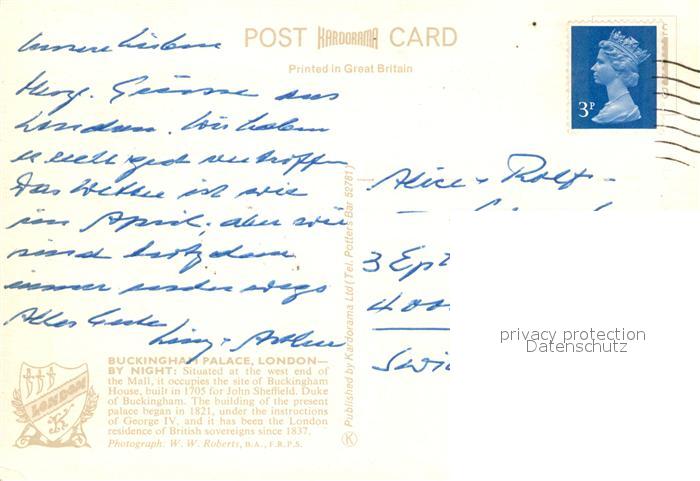 POST KARDORAMA CARD
Printed in Great Britain
3P
Unsere Lieben
Herzl. Grüsse aus
London. Wir haben
es gut
Das Wetter ist wie
im April, aber wir
sind trotzdem
immer unterwegs
Alles Gute
Arthur
Published by Kardorama Ltd (Tel. Potters Bar 52781)
K
Alice + Rolf
3
400
Swi
privacy protection
Datenschutz
LONDON
BUCKINGHAM PALACE, LONDON—
BY NIGHT: Situated at the west end of
the Mall, it occupies the site of Buckingham
House, built in 1705 for John Sheffield, Duke
of Buckingham. The building of the present
palace began in 1821, under the instructions
of George IV, and it has been the London
residence of British sovereigns since 1837.
Photograph: W. W. Roberts, B.A., F.R.P.S.